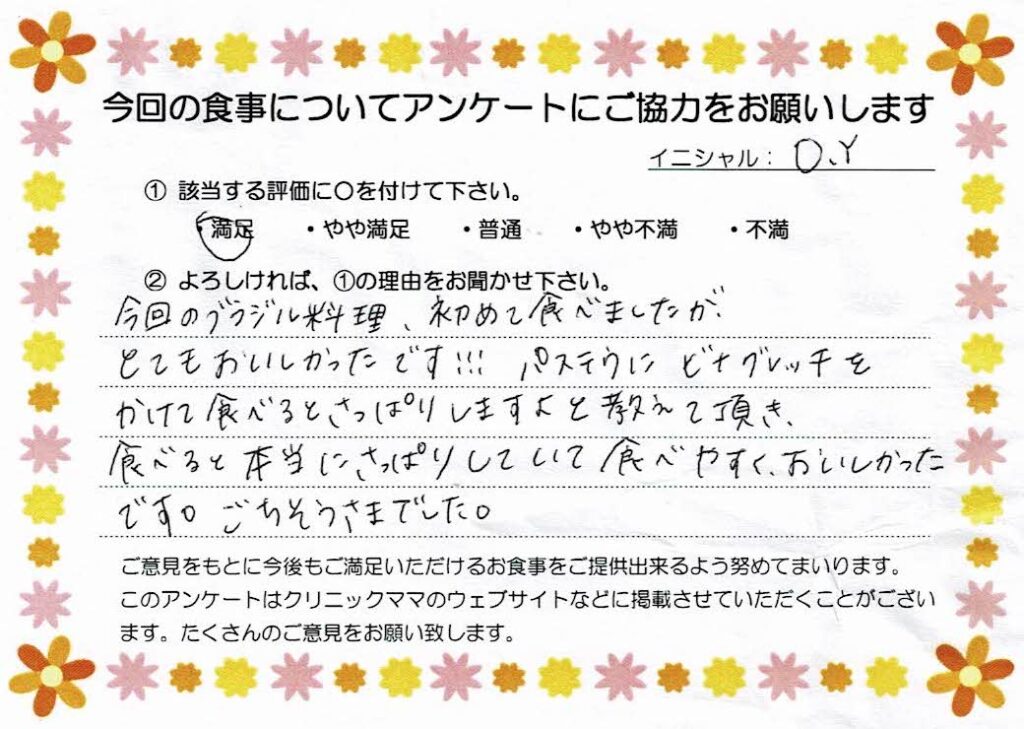 今回の食事についてアンケートにご協力をお願いします
イニシャル： O、Y
① 該当する評価に〇を付けて下さい。
・満足 ・やや満足 ・普通 ・やや不満 ・不満
② よろしければ、①の理由をお聞かせ下さい。
今回のブラジル料理、初めて食べましたが、
とてもおいしかったです!!! パステウに ビナグレッチを
かけて食べるとさっぱりしますよと教えて頂き、
食べると本当にさっぱりしていて食べやすく、おいしかった
です。ごちそうさまでした。
ご意見をもとに今後もご満足いただけるお食事をご提供出来るよう努めてまいります。
このアンケートはクリニックママのウェブサイトなどに掲載させていただくことがござい
ます。たくさんのご意見をお願い致します。